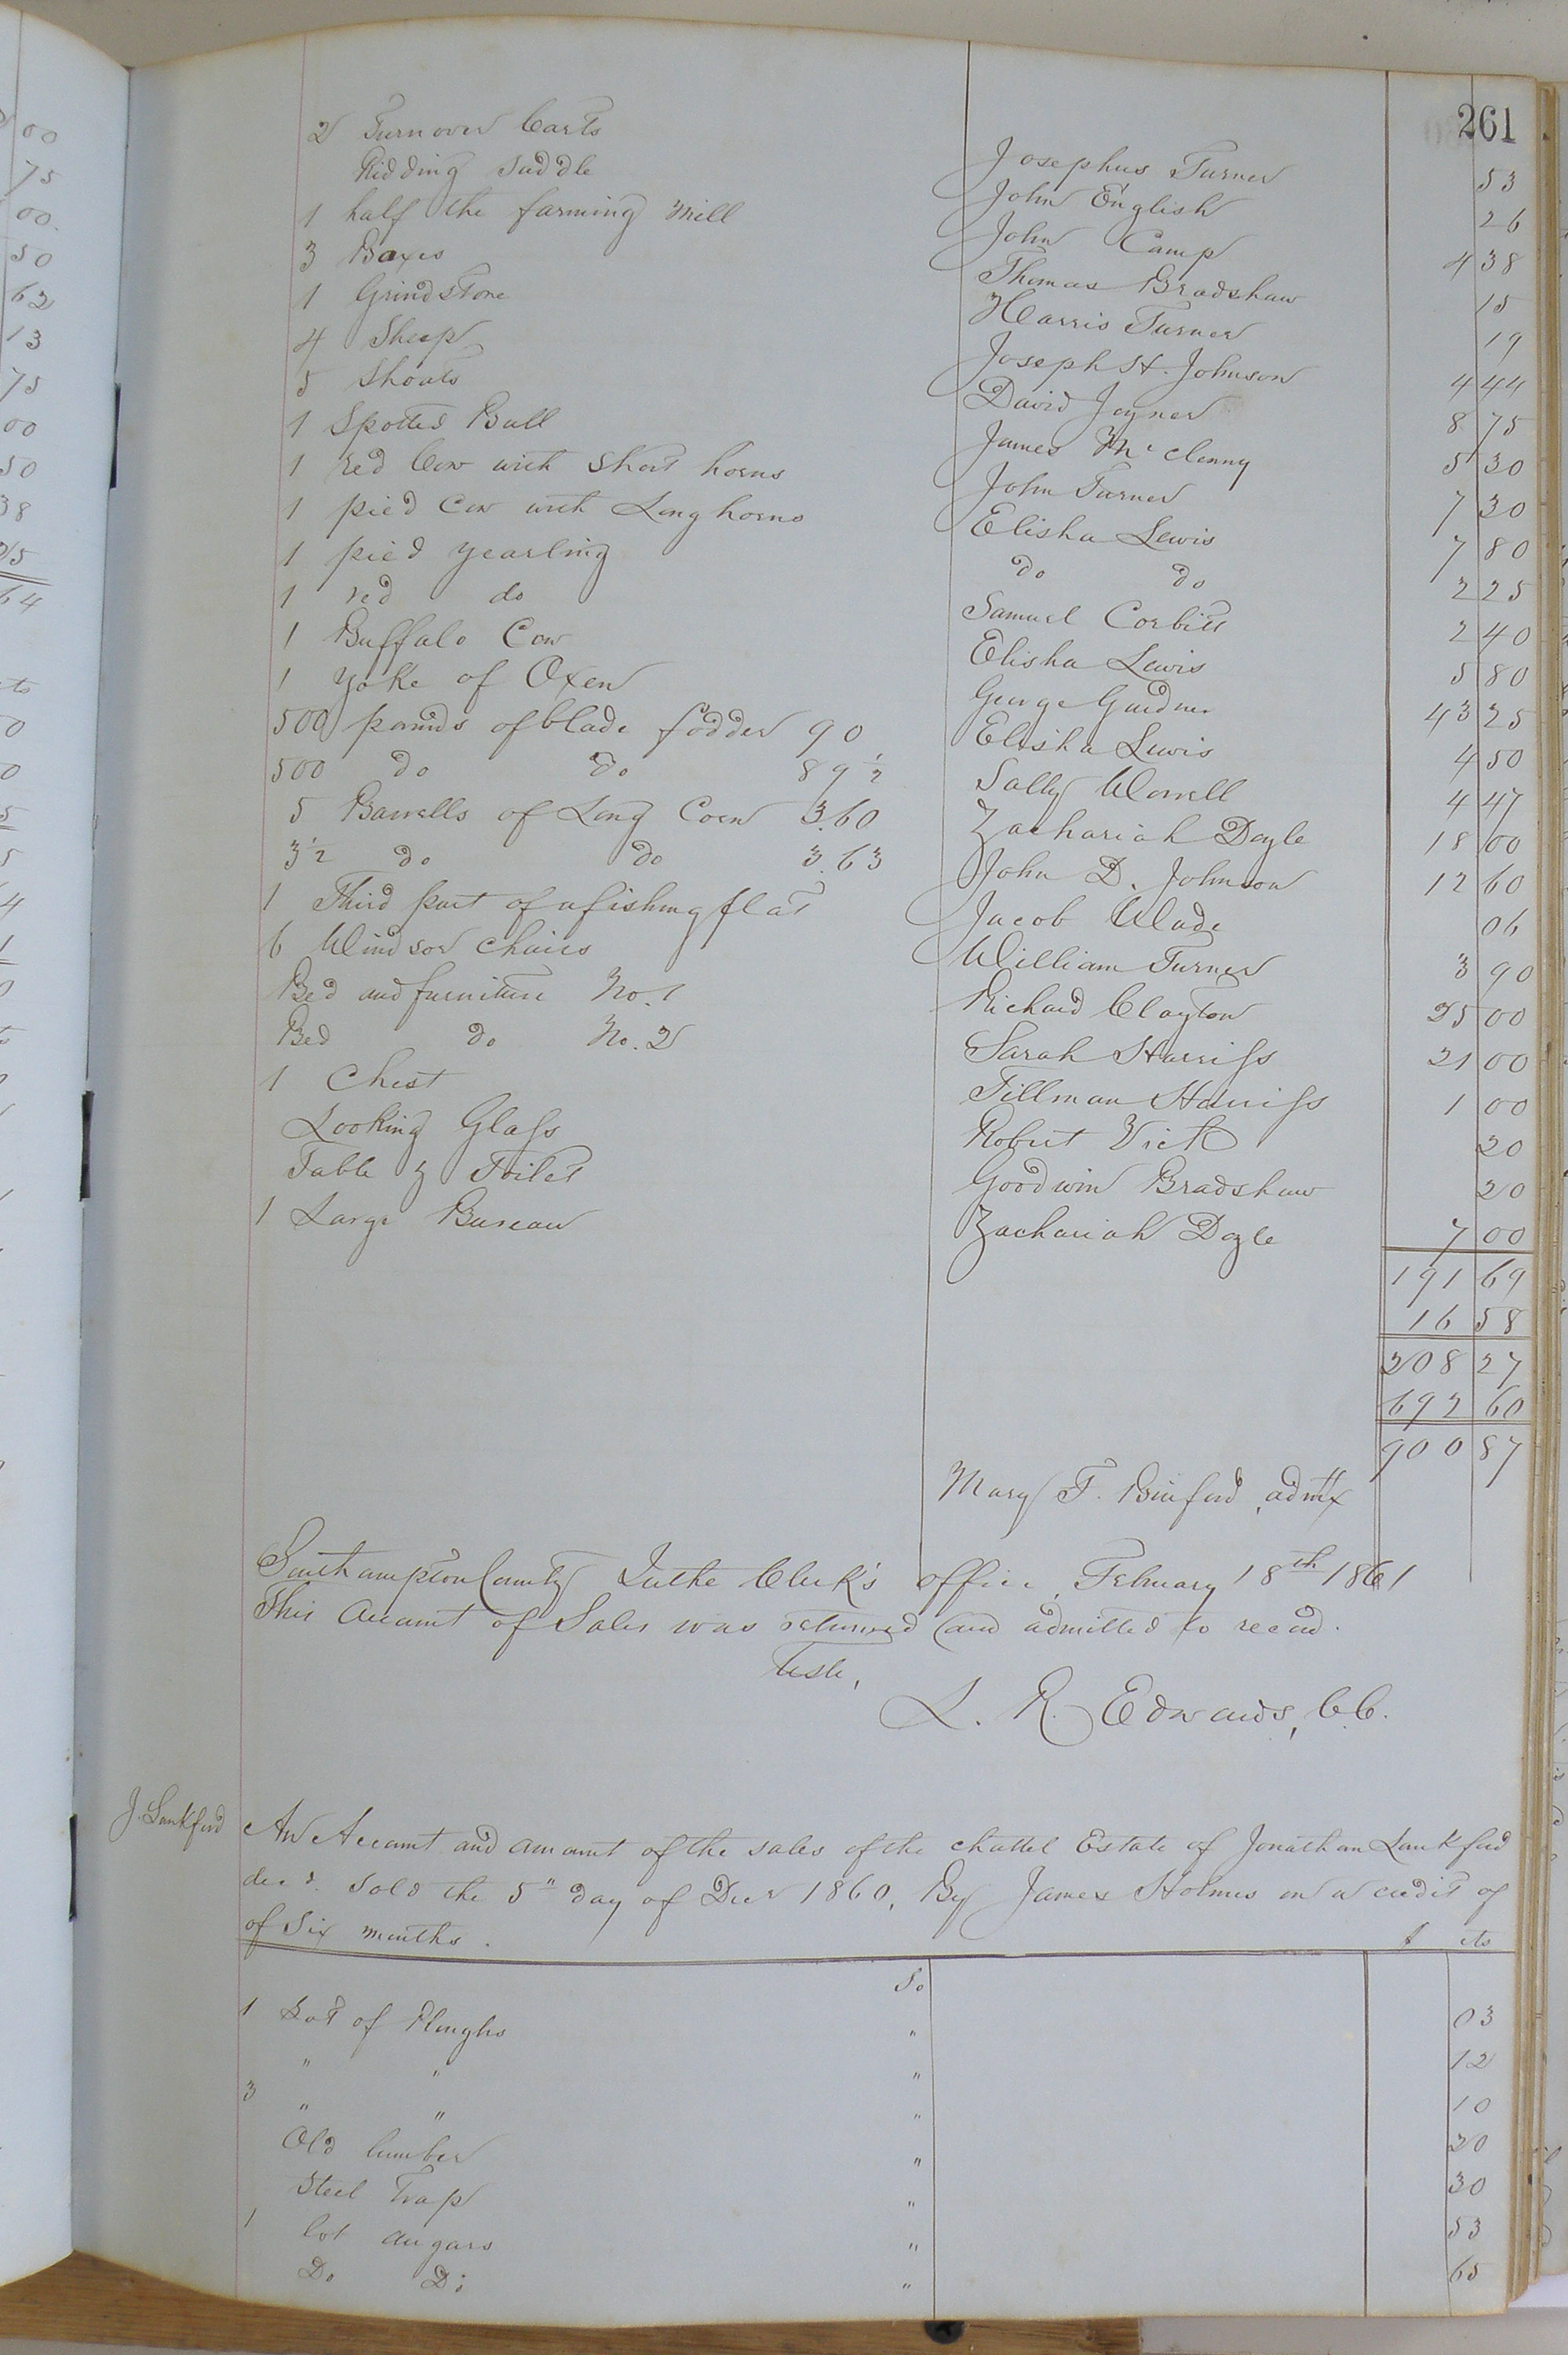 261
2 Turnover Carts Josephus Turner 53
Ridding Saddle John English 26
1 half the farming Mill John Camp 4 38
3 Boxes Thomas Bradshaw 15
1 Grindstone Harris Turner 19
4 Sheep Joseph H. Johnson 4 44
5 Shoats David Joyner 8 75
1 Spotted Bull James Mc clenny 5 30
1 red Cow with Short horns John Turner 7 30
1 pied Cow with Long horns Elisha Lewis 7 80
1 pied yearling do do 2 25
1 red do Samuel Corbitt 2 40
1 Buffalo Cow Elisha Lewis 5 80
1 Yoke of Oxen George Gardner 43 25
500 pounds of blade fodder 90 Elisha Lewis 4 50
500 do do 89 1/2 Sally Worrell 4 47
5 Barrells of Long Corn 3.60 Zachariah Doyle 18 00
3 1/2 do do 3.63 John D. Johnson 12 60
1 Third part of a fishing flat Jacob Wade 06
6 Windsor chairs William Turner 3 90
Bed and furniture No. 1 Richard Clayton 25 00
Bed do No. 2 Sarah Harriss 21 00
1 Chest Tillman Harriss 1 00
Looking Glass Robert Vick 20
Table & Toilet Goodwin Bradshaw 20
1 Large Bureau Zachariah Doyle 7 00
191 69
16 58
208 27
692 60
900 87
Mary F. Binford, admtx
Southampton County In the Clerk's office, February 18th 1861
This Account of Sales was returned and admitted to record.
Teste,
L. R. Edwards, C.C.
J. Lankford
An Account and amount of the sales of the chattel Estate of Jonathan Lankford
decd. Sold the 5" day of Decr 1860, By James Holmes on a credit of
of Six months.
$ cts
To
1 Lot of Ploughs " 03
" " " 12
3 " " " 10
Old lumber " 20
Steel Trap " 30
1 lot augars " 53
Do Do " 65
00
75
00.
50
62
13
75
00
50
38
25
64